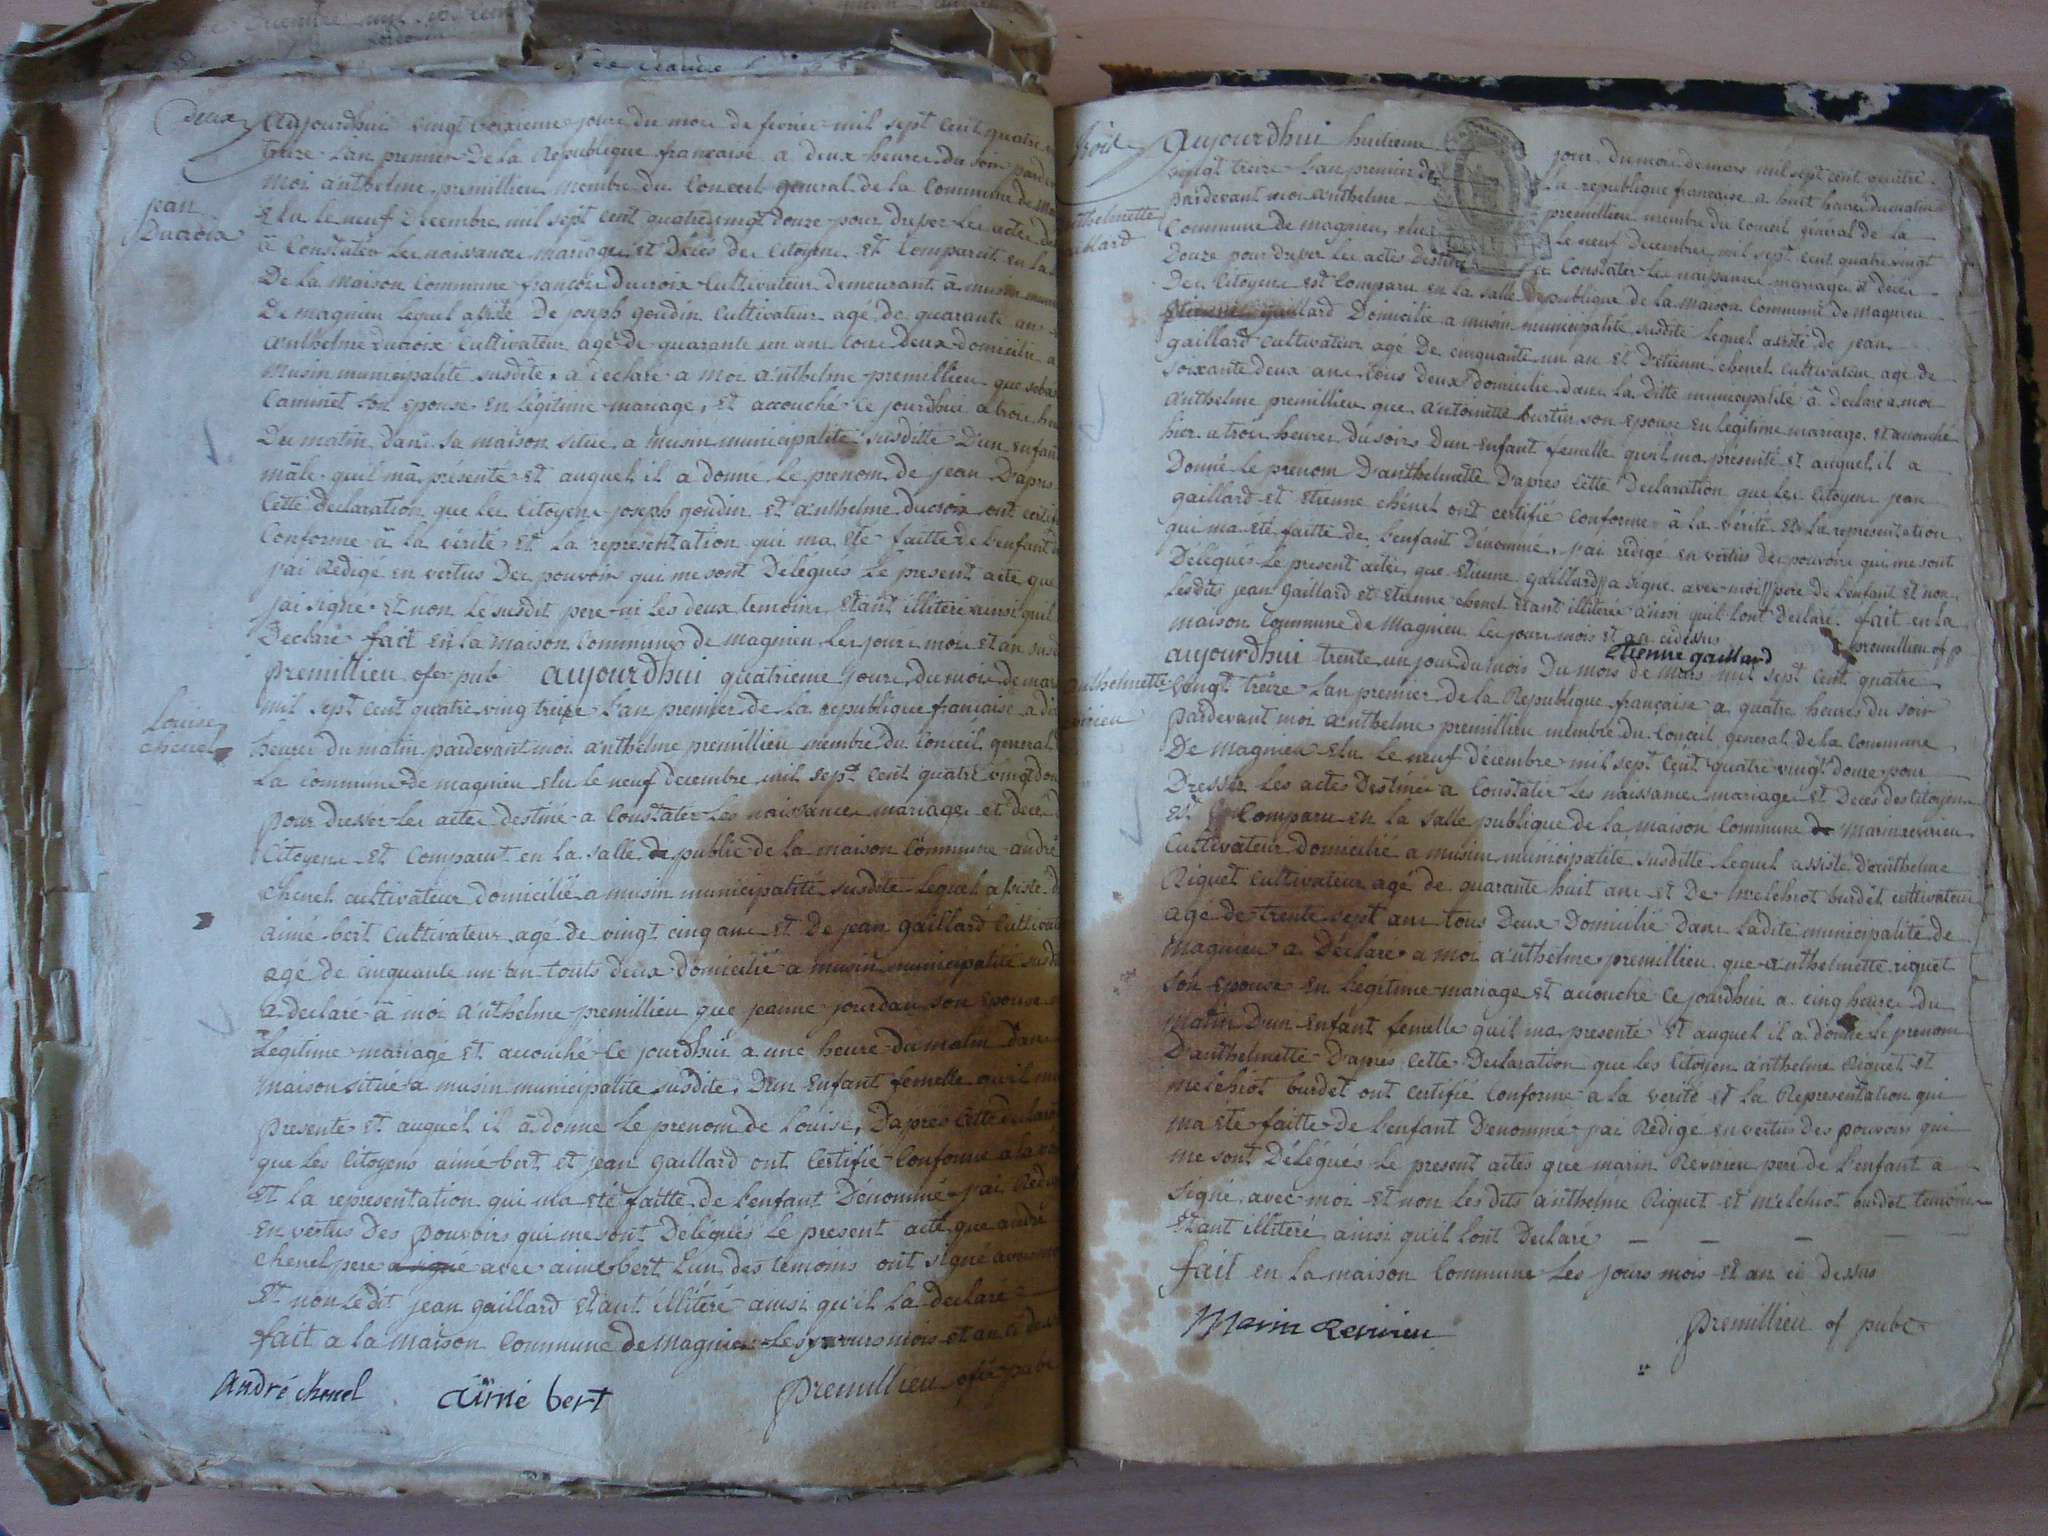 deux
Aujourdhui vingt troixieme jours du mois de fevrier mil sept cent quatre
treize l'an premier de la Republique française a deux heures du soir parde
moi anthelme premillieu membre du Conseil general de la Commune de
elu le neuf Decembre mil sept cent quatre vingt douze pour dresser les actes
jean
Ducroix
a Constater les naissances mariages et Décès des Citoyens est Comparut en la
De la maison Commune françois Ducroix Cultivateur demeurant à musin
De magnieu lequel assisté de joseph goudin Cultivateur agé de quarante ans
anthelme Ducroix Cultivateur agé de quarante un ans tous deux domicilié a
musin municipalité susdite, a déclaré a moi anthelme premillieu que
Caminet son epouse en légitime mariage, est accouché ce jourdhui a trois
Du matin dans sa maison située a musin municipalité susditte D'un enfant
mâle quil mâ présenté et auquel il a donné le prenom de jean D'apres
Cette declaration que les Citoyens joseph goudin et anthelme Ducroix ont
Conforme à la vérité et la représentation qui ma été faitte de l'enfant
j'ai Rédigé en vertus Des pouvoirs qui me sont Delégués le present acte que
jai signé et non le susdit pere ni les deux temoins étant illiteré ainsi quil
Déclaré fait en la maison Commune de magnieu les jours mois et an
premillieu ofer pub aujourdhui quatrieme jours du mois de mars
mil sept cent quatre ving treize l'an premier de la republique francaise a
Louise
chenel
heures du matin pardevant moi anthelme premillieu membre du Conseil general
La commune de magnieu elu le neuf decembre mil sept cent quatre vingt
pour dresser les actes destiné a Constater les naissances mariages et décès
Citoyens est Comparut en la salle de public de la maison Commune andré
chenel cultivateur domicilié a musin municipalité susdite lequel assisté
aimé bert Cultivateur agé de vingt cinq ans et De jean gaillard
agé de cinquante un an touts deux domicilié a musin municipalité
a declaré à moi anthelme premillieu que jeanne jourdan son epouse
Légitime mariage est acouché ce jourdhui a une heure du matin dans
maison situé a musin municipalité susdite, D'un enfant femelle qu'il
présente et auquel il à donné le prenom de Louise, D'après cette
que les Citoyens aimé bert et jean gaillard ont Certifié Conforme a la
et la representation qui ma été faitte de l'enfant Dénommé j'ai
en vertus Des pouvoirs qui me sont Delégués le present acte que andré
chenel pere a signé avec aimé bert l'un des temoins ont signé
et non Le dit jean gaillard étant illitéré ainsi qu'il la declaré
fait a la maison commune de magnieu les jours mois et an
andré chenel aimé bert premillieu ofer pube
trois
aujourdhui huitieme jour du mois de mars mil sept cent quatre
vingt treize l'an premier de la république française a huit heures du matin
pardevant moi anthelme premillieu membre du Conseil général de la
Commune de magnieu elu le neuf decembre mil sept cent quatre vingt
Douze pour dresser les actes destiné a Constater les naissances mariages et décès
Des Citoyens est Comparu en la salle publique de la maison Commune de magnieu
etienne gaillard Domicilié a musin municipalité susdite lequel assisté de jean
gaillard cultivateur agé De cinquante un an et D'etienne chenel Cultivateur age de
soixante deux ans tous deux domicilié dans la ditte municipalité à declaré a moi
anthelme premillieu que antoinette burtin son epouse en légitime mariage est acouché
hier a trois heures du soir D'un enfant femelle qu'il ma présenté et auquel il a
Donné le prenom D'anthelmette D'apres cette Declaration que les citoyens jean
gaillard et etienne chénel ont certifié conforme à la vérité et la representation
qui ma été faitte de l'enfant Dénommé, j'ai rédigé en vertus des pouvoirs qui me sont
Delégués le present actes que etienne gaillard a signé avec moi pere de l'enfant et non
lesdits jean gaillard et etienne chenel étant illiteré ainsi quil lont declaré. fait en la
maison Commune de magnieu les jours mois et an cidessus
etienne gaillard premillieu of p
aujourdhui trente un jour du mois Du mois de mars mil sept cent quatre
anthelmette
vingt treize l'an premier de la Republique française a quatre heures du soir
pardevant moi anthelme premillieu membre du Conseil general de la commune
De magnieu elu le neuf décembre mil sept cent quatre vingt douze pour
Dresser les actes Destinée a Constater les naissances mariages et Décès des Citoyens
est Comparu en la salle publique de la maison Commune de marin revirieu
Cultivateur Domicilié a musin municipalité susditte lequel assisté d'anthelme
Riquet cultivateur agé de quarante huit ans et De melchiot burdet cultivateur
agé de trente sept ans tous Deux Domicilié Dans ladite municipalité de
magnieu a Déclaré a moi anthelme premillieu que anthelmette riquet
son epouse en Legitime mariage est acouché ce jourdhui a cinq heures du
matin D'un enfant femelle quil ma presenté et auquel il a donné le prenom
D'anthelmette D'apres cette Declaration que les Citoyens anthelme Riquet et
melchiot burdet ont certifié Conforme a la verité et la Representation qui
ma été faitte de l'enfant Dénommé j'ai Redigé en vertus des pouvoirs qui
me sont Délégués le present actes que marin Revirieu pere de l'enfant a
signé avec moi et non les dits anthelme Riquet et melchiot burdet temoins
etant illiteré ainsi qu'il lont Declaré
fait en la maison Commune les jours mois et an ci dessus
Marin Revirieu premillieu of pube